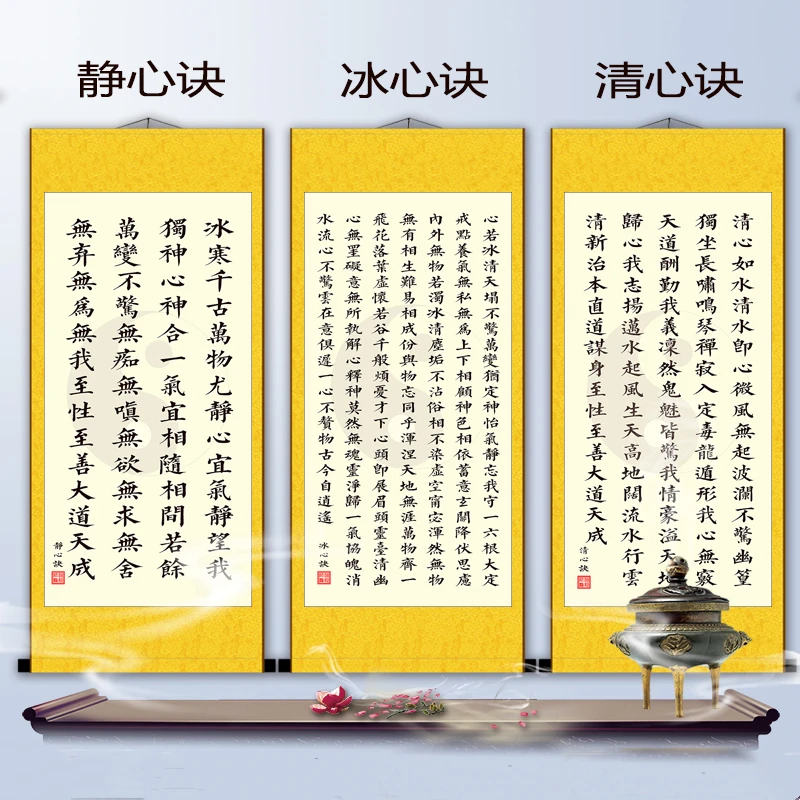 静心诀
冰寒千古萬物尤靜心宜氣靜望我
獨神心神合一氣宜相隨相間若餘
萬變不驚無痴無嗔無欲無求無舍
無弃無爲無我至性至善大道天成
靜心訣
冰心诀
心若冰清天塌不驚萬變猶定神怡氣靜忘我守一六根大定
戒點養氣無私無爲上下相顧神色相依蓄意玄關降伏思慮
內外無物若濁冰清塵垢不沾俗相不染虛空甯宓渾然無物
無有相生難易相成份與物忘同乎渾涅天地無涯萬物齊一
飛花落葉虛懷若谷千般煩憂才下心頭卽展眉頭靈臺清幽
心無罣礙意無所執解心釋神莫然無魂靈淨歸一氣協魄消
水流心不驚雲在意俱遲一心不贅物古今自逍遙
冰心訣
清心诀
清心如水清水卽心微風無起波瀾不驚幽篁
獨坐長嘯鳴琴禪寂入定毒龍遁形我心無竅
天道酬勤我義凛然鬼魅皆驚我情豪溢天地
歸心我志揚邁水起風生天高地闊流水行雲
清新治本直道謀身至性至善大道天成
清心訣